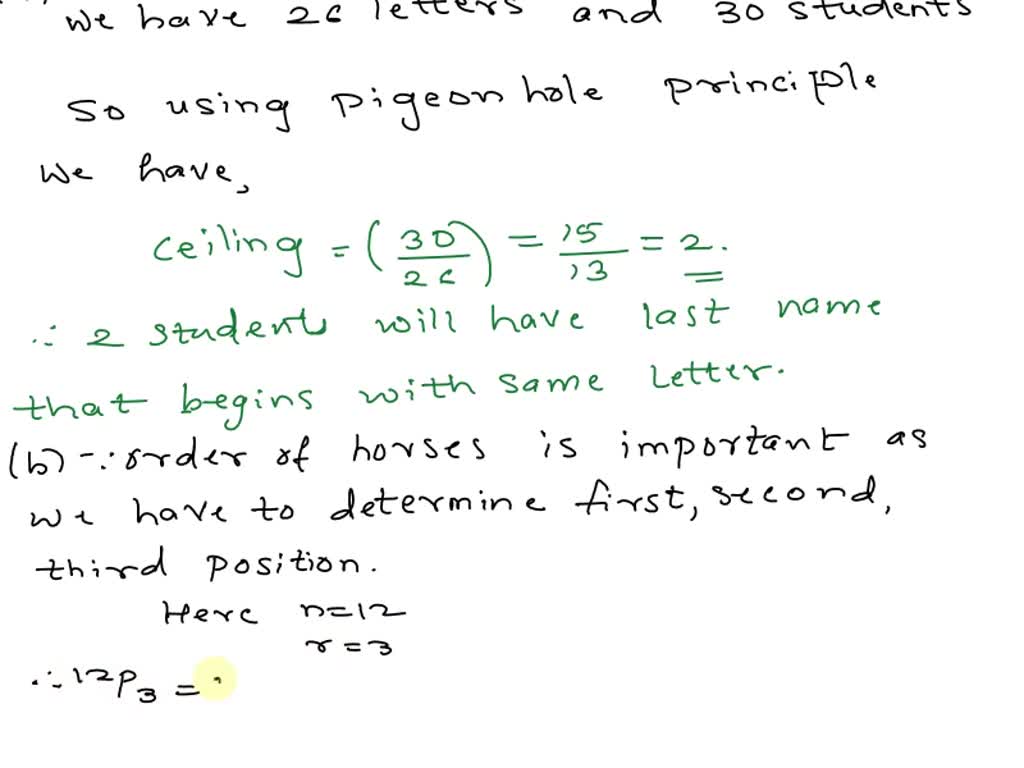 we have 26 letters and 30 students
So using pigeonhole principle
we have,
ceiling = (30/26) = 15/13 = 2.
∴ 2 students will have last name
that begins with same letter.
(b) - ∵ order of horses is important as
we have to determine first, second,
third position.
Here n=12
r=3
∴ 12P3 =